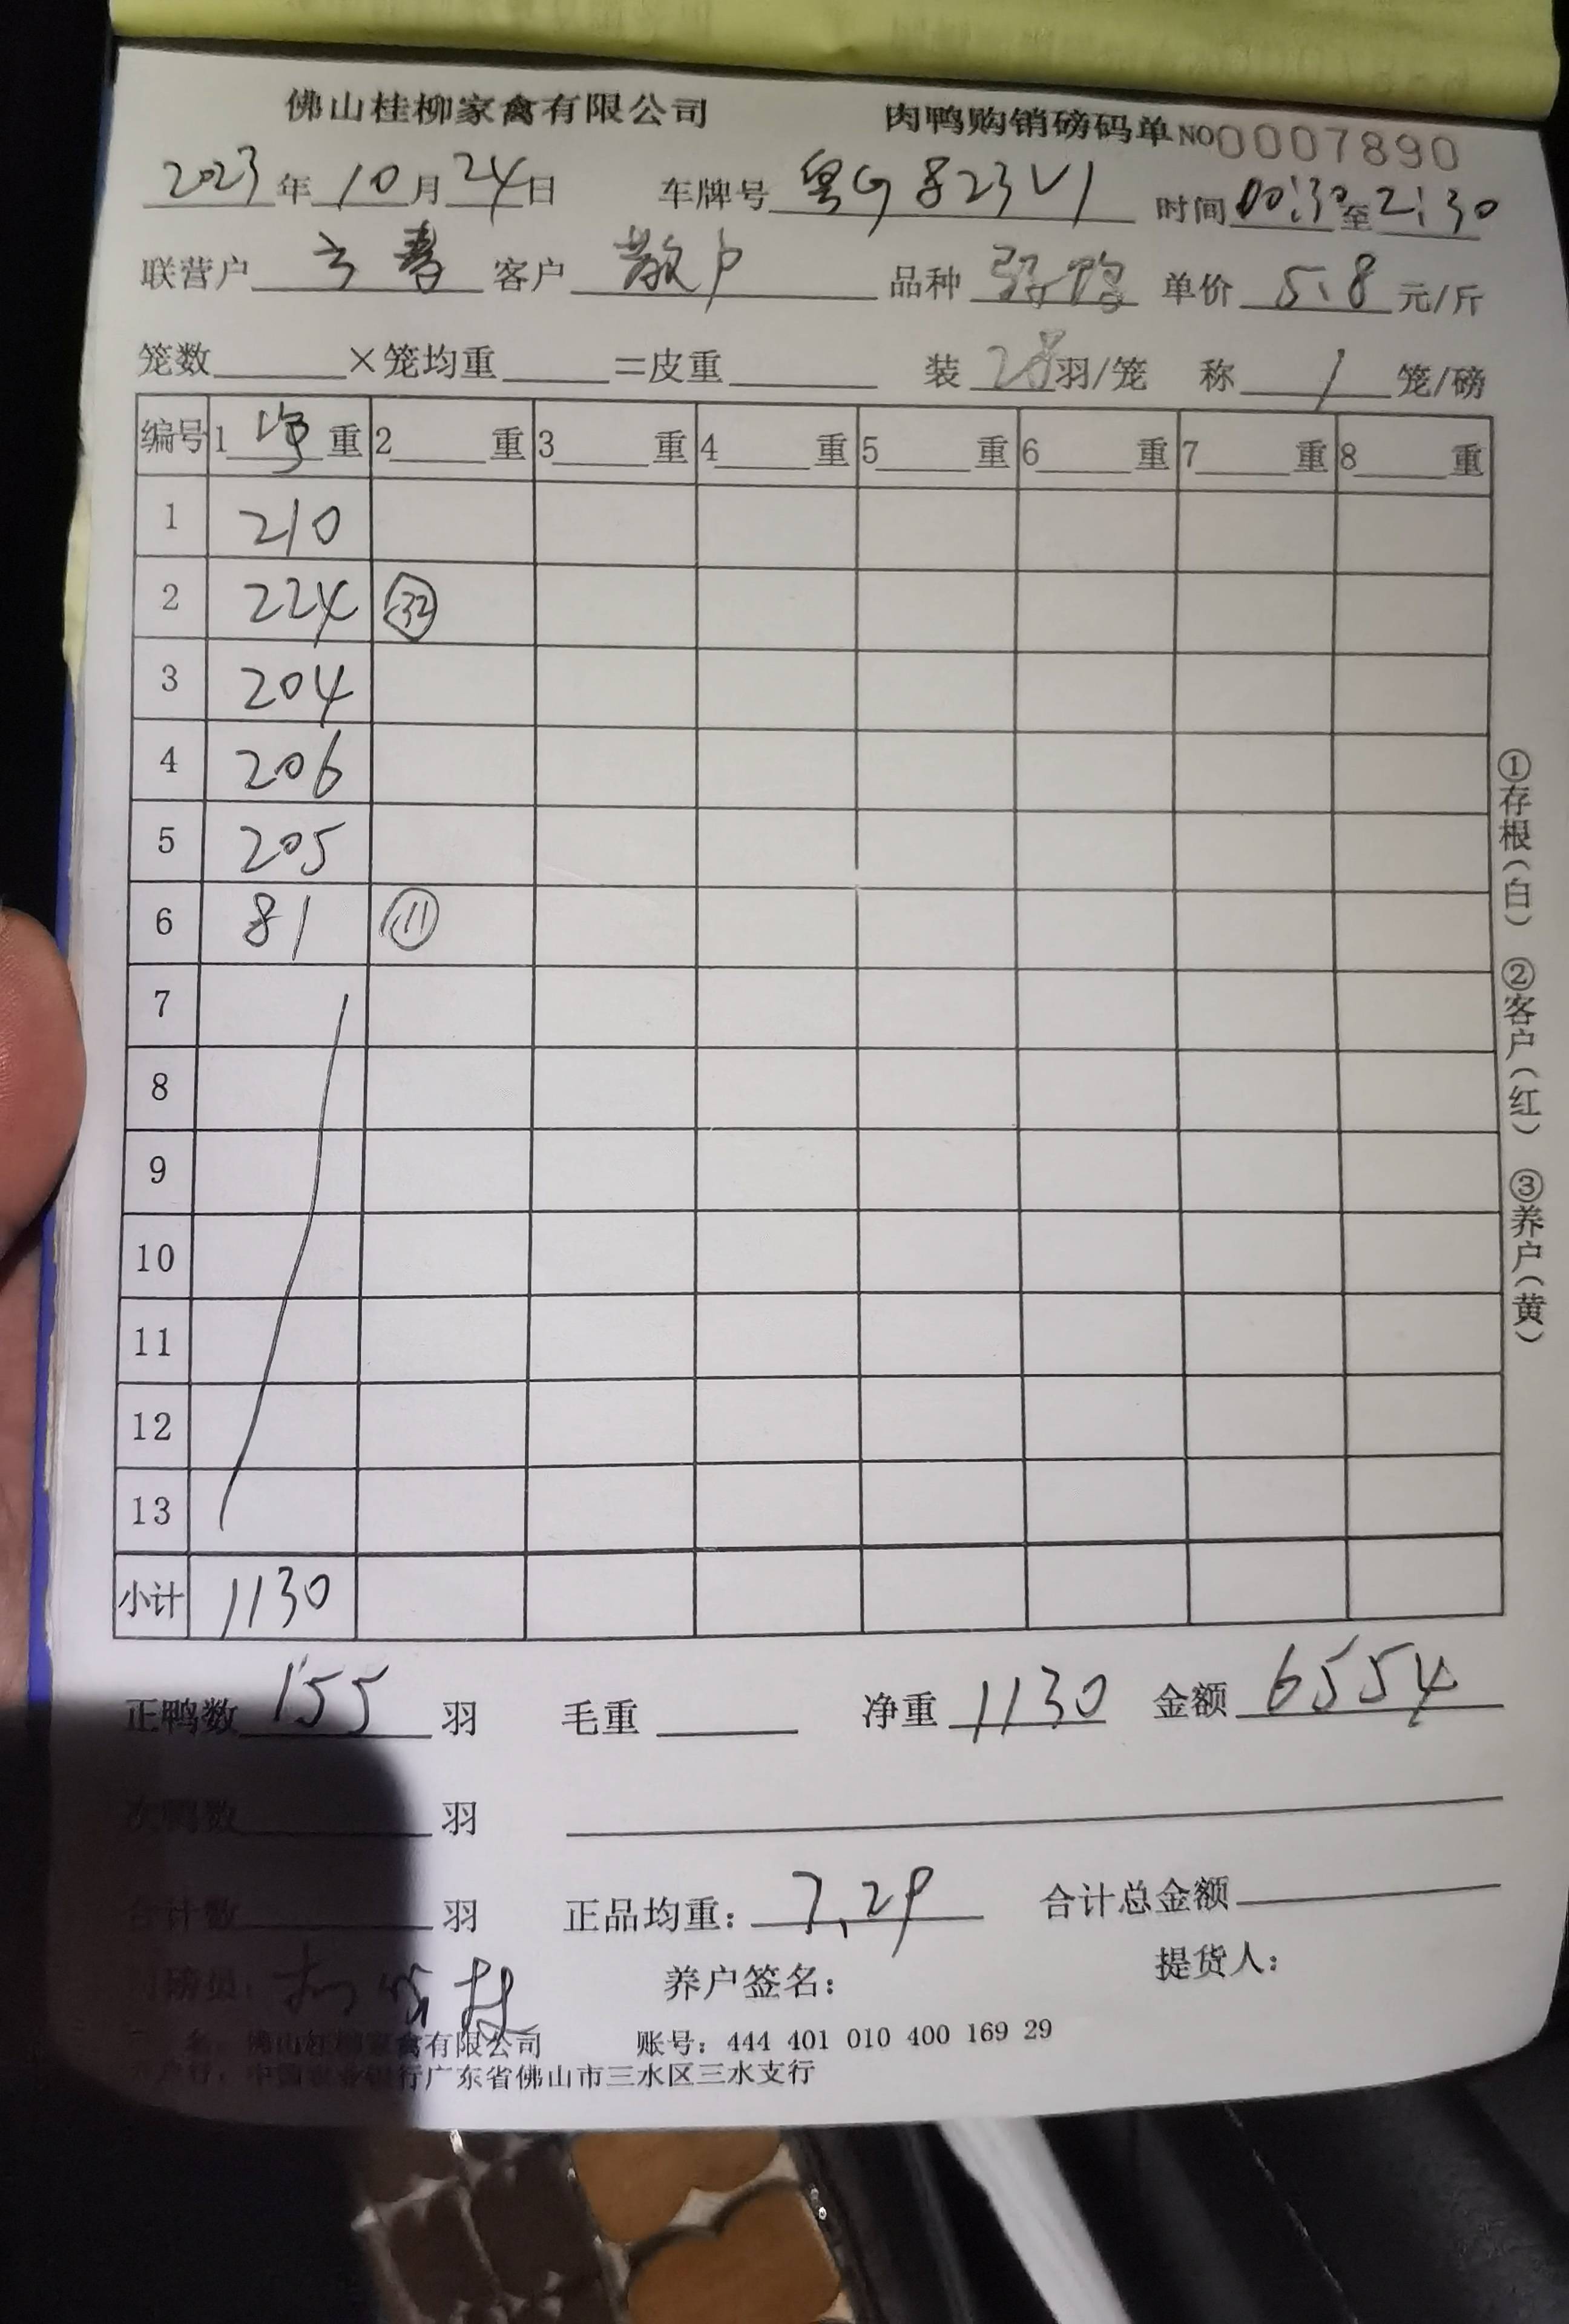 佛山桂柳家禽有限公司 肉鸭购销磅码单 NO 0007890
2023年10月24日 车牌号 粤G823V1 时间 00:30至2:30
联营户 客户 散户 品种 单价 5.8 元/斤
笼数 ×笼均重 =皮重 装 28 羽/笼 称 1 笼/磅
编号 1 净 重 2 重 3 重 4 重 5 重 6 重 7 重 8 重
1 210
2 224 32
3 204
4 206
5 205
6 81 11
7
8
9
10
11
12
13
小计 1130
正鸭数 155 羽 毛重 净重 1130 金额 6554
次鸭数 羽
合计数 羽 正品均重: 7.29 合计总金额
司磅员: 养户签名: 提货人:
名: 佛山桂柳家禽有限公司 账号: 444 401 010 400 169 29
户行: 中国农业银行广东省佛山市三水区三水支行
①存根(白) ②客户(红) ③养户(黄)